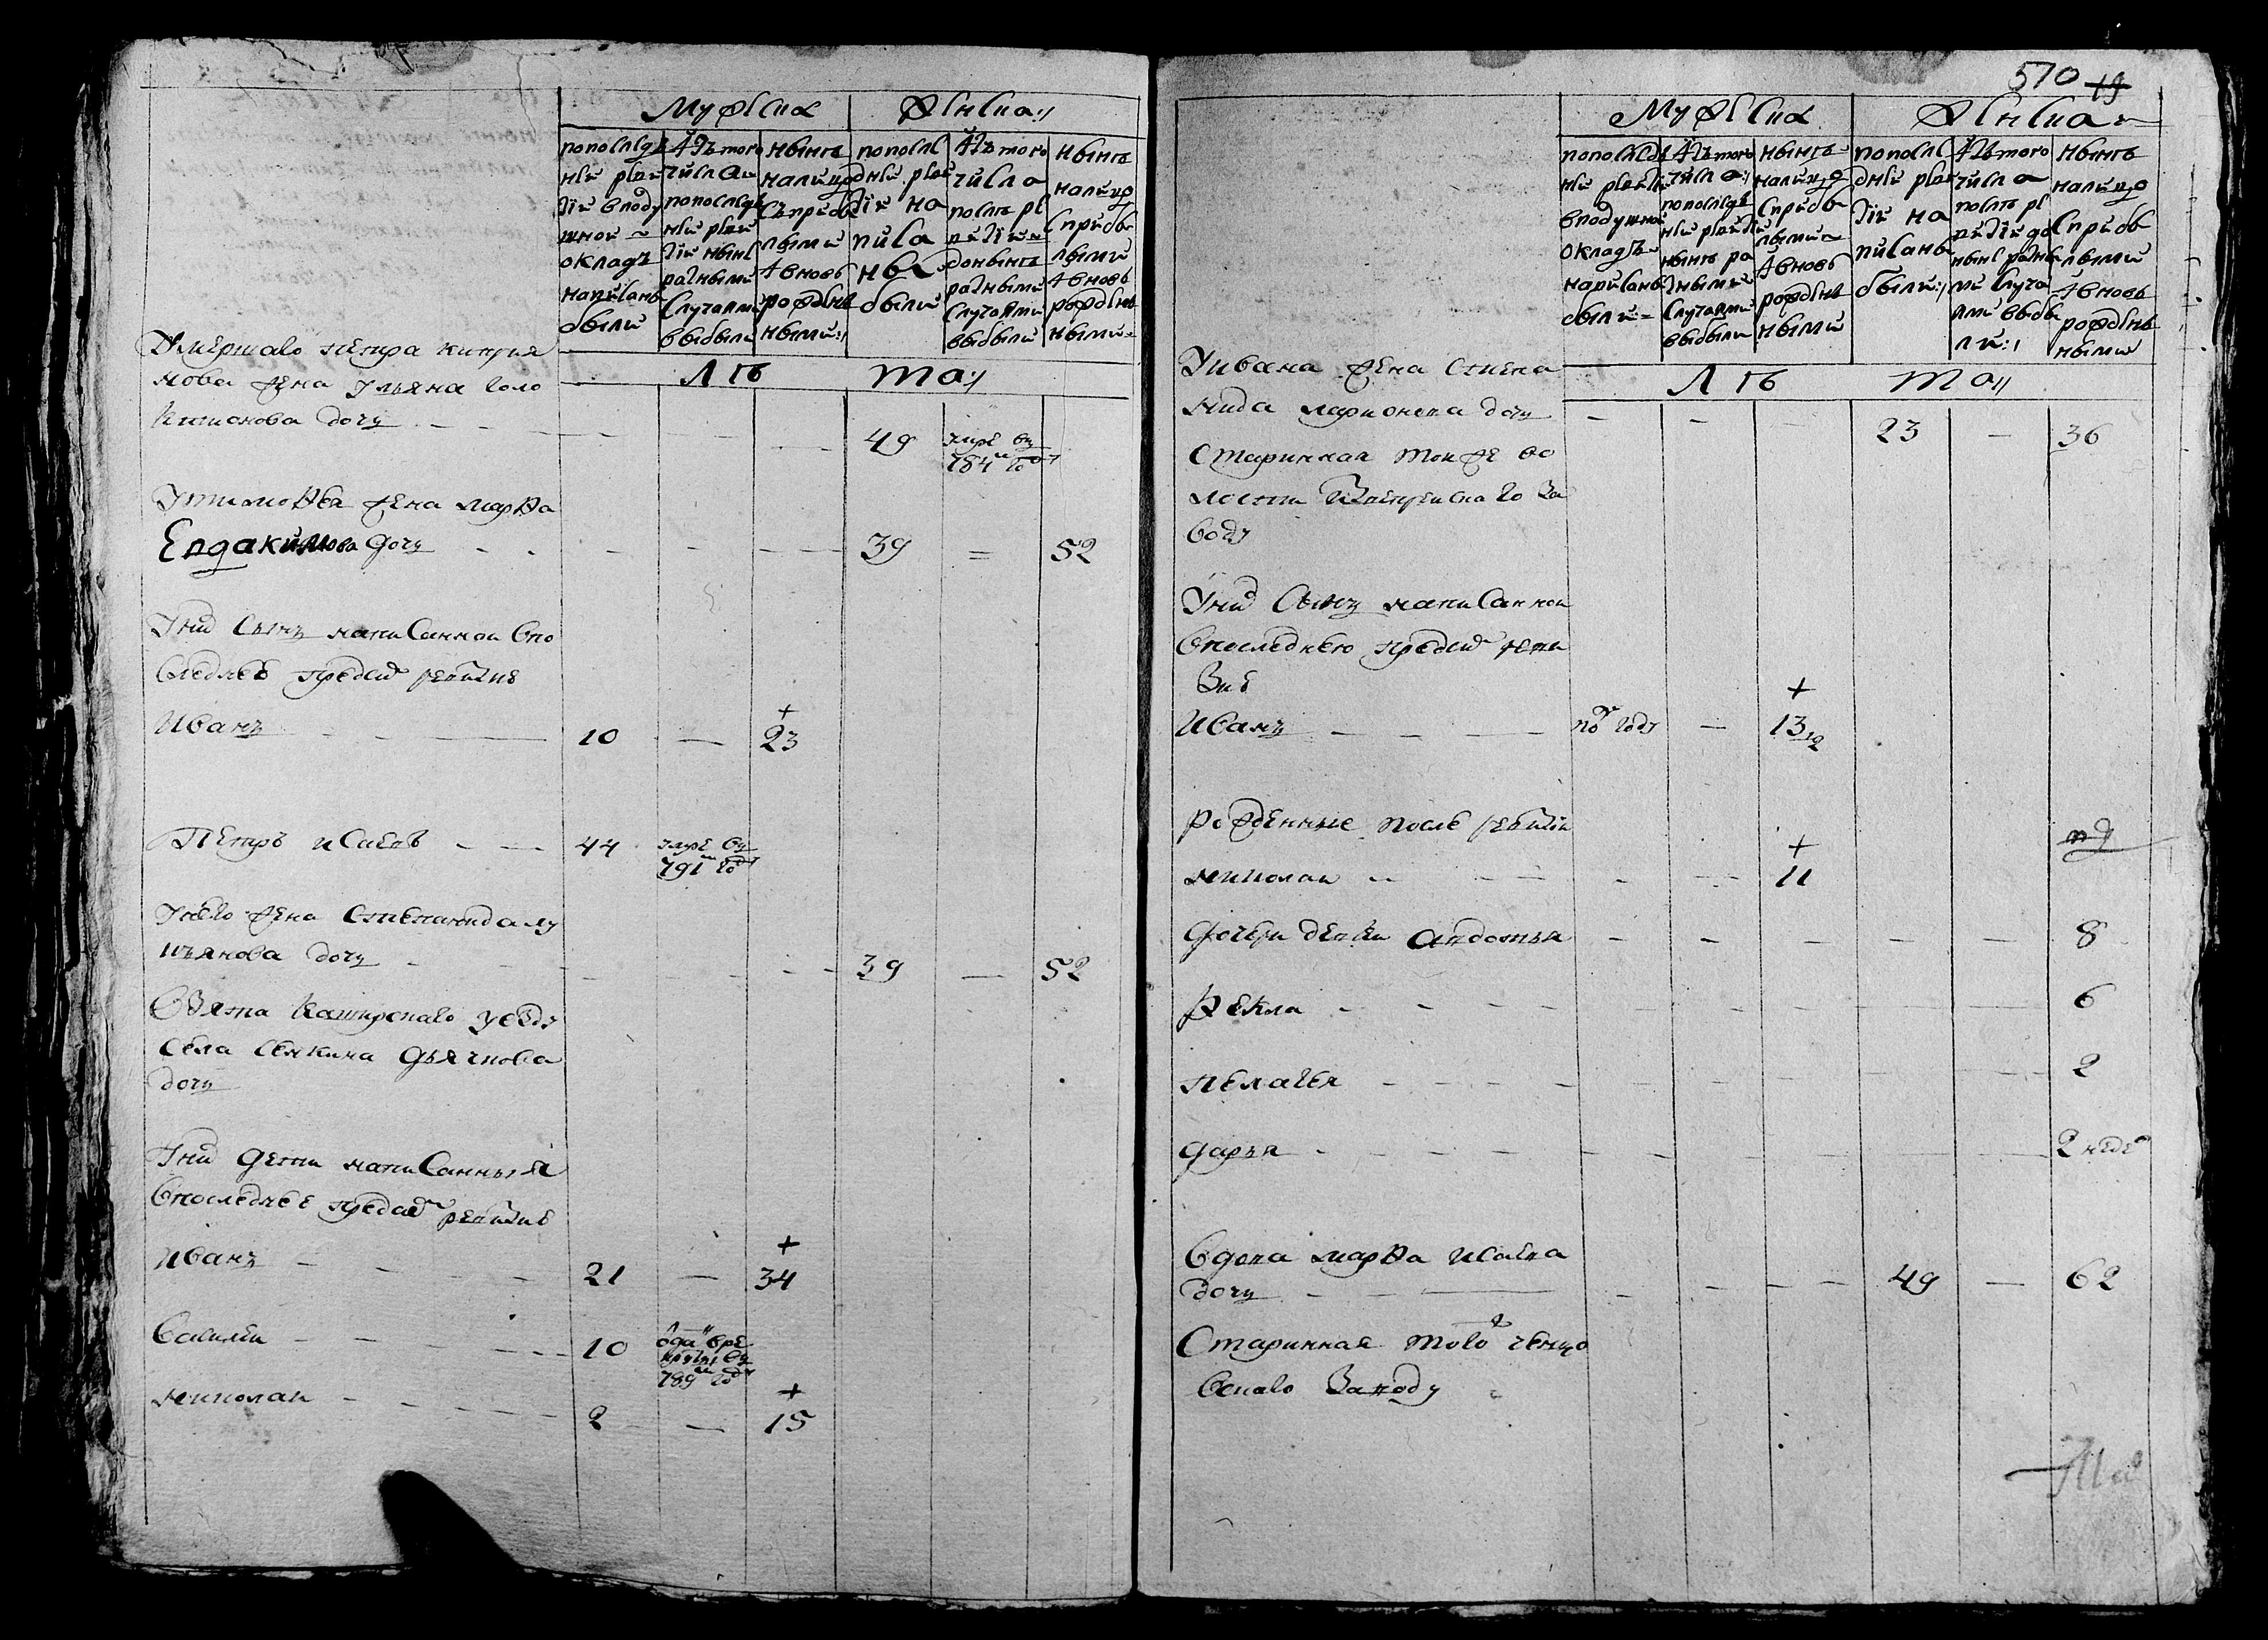 Мужеска
Женска
по последней ревизии в подушной окладъ написаны были
Из того числа по последней ревизии ныне разными случаями выбыли
ныне налицо с прибылыми и вновь рожденными
по последней ревизии написаны были
Из того числа после ревизии до ныне разными случаями выбыли
ныне налицо с прибылыми и вновь рожденными
Лѣта
Умершаго петра
нова жена Ульяна
дочь 49 умре въ
784м году
жена марѳа
Евдакимова дочь 39 = 52
У них сынъ написанной в по
следнеѣ пред сим ревизиѣ
Иванъ 10 — + 23
Петръ исаевъ 44 умре въ
791м году
У него жена степанида лу
кьянова дочь 39 — 52
Взята каширскаго уезду
села дьячкова
дочь
У них дети написанныя
в последнеѣ пред сим ревизиѣ
Иванъ 21 — + 34
василеи 10 одан в ре
круты въ
789м году
николаи 2 — + 15
510 19
Мужеска
Женска
по последней ревизии в подушной окладъ написаны были
Из того числа по последней ревизии ныне разными случаями выбыли
ныне налицо с прибылыми и вновь рожденными
по последней ревизии написаны были
Из того числа после ревизии до ныне разными случаями выбыли
ныне налицо с прибылыми и вновь рожденными
Лѣта
У ивана жена степа
нида ларионова дочь 23 — 36
старинная той же во
лости за
воду
У них сынъ написанной
в последнею пред сим реви
зиѣ
Иванъ пол году — + 13 12
рожденные послѣ ревизии
николаи + 11
дочери девки авдотья 8
ѳекла 6
пелагея 2
дарья 2 неде
вдова марѳа исаева
дочь 49 — 62
Старинная того ж ченцо
вскаго заводу